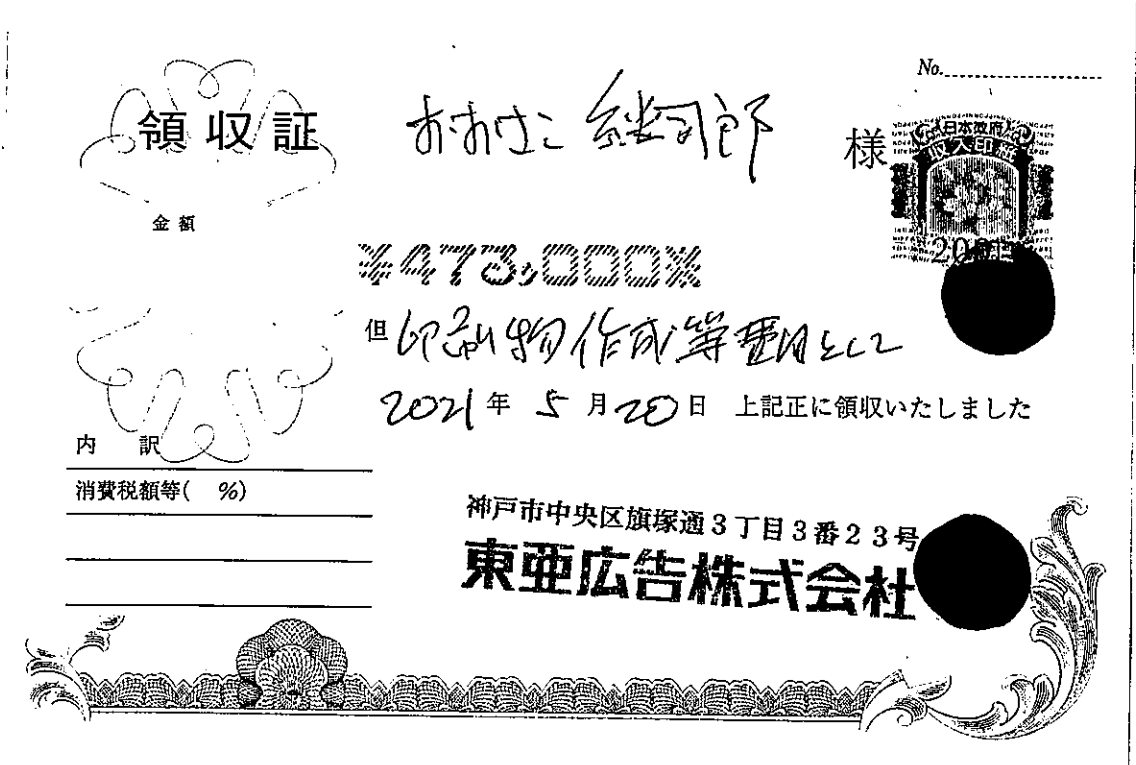 No.
領収証
おおさこ 継司郎 様
日本政府
収入印紙
200円
金額
¥473,000※
但 印刷物作成等費用として
2021年 5月20日 上記正に領収いたしました
内 訳
消費税額等( %)
神戸市中央区旗塚通3丁目3番23号
東亜広告株式会社